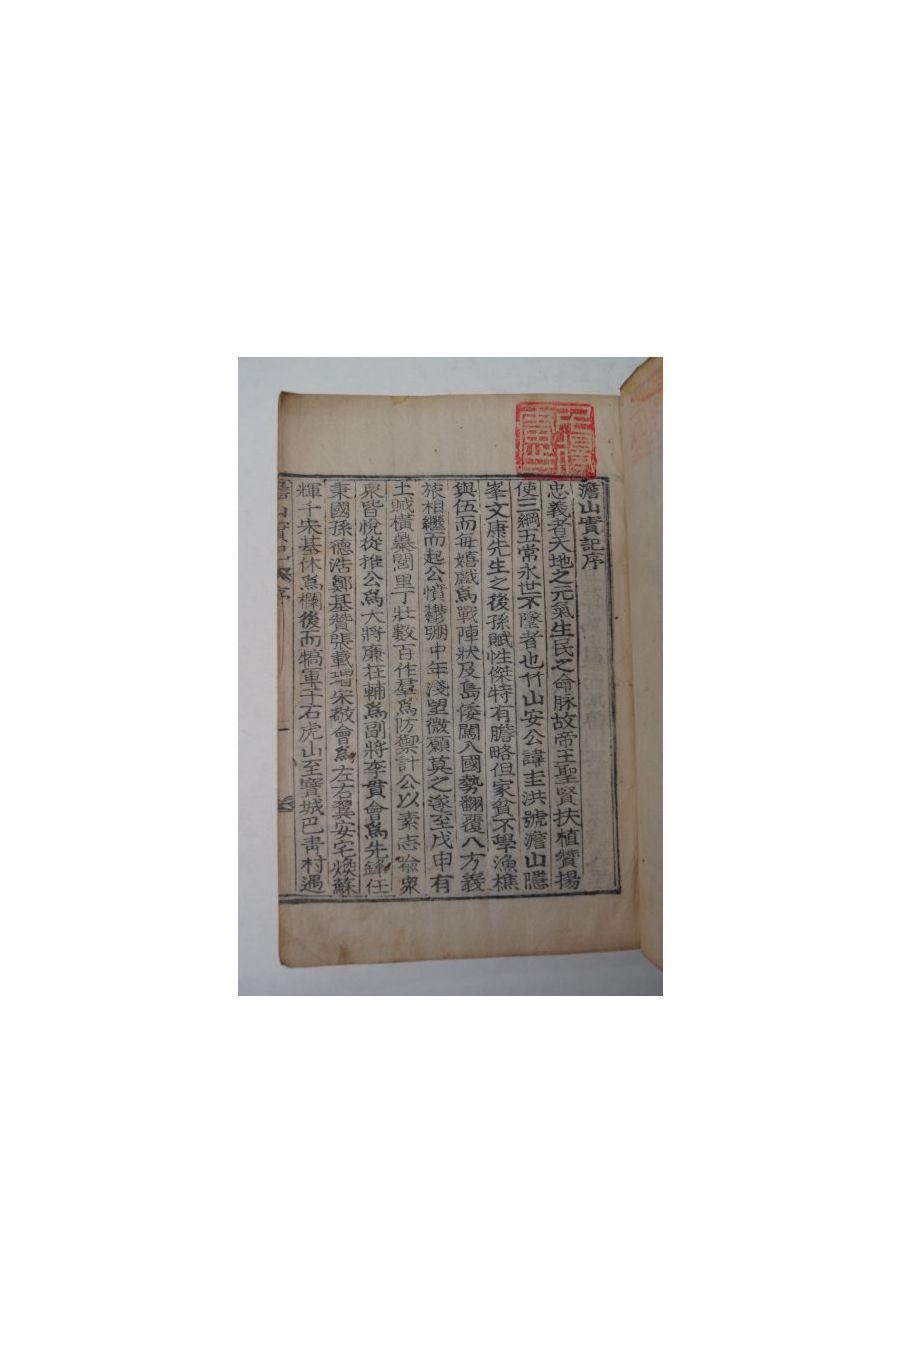 澹山實記序
忠義者天地之元氣生民之命脉故帝王聖賢扶植贊揚
使三綱五常永世不墜者也竹山安公諱圭洪號澹山隱
峯文康先生之後孫賦性傑特有膽略但家貧不學漁樵
與伍而每嬉戲爲戰陣狀及島倭闖入國勢翻覆八方義
旅相繼而起公憤鬱弸中年淺望微願莫之遂至戊申有
土賊橫暴閭里丁壯數百作羣爲防禦計公以素志喩衆
衆皆悅從推公爲大將廉在輔爲副將李貫會爲先鋒任
秉國孫德浩鄭基贊張載增宋敬會爲左右翼安宅煥蘇
輝千宋基休爲欄後而犒軍于石虎山至寶城巴靑村遇
澹山實記 序 一